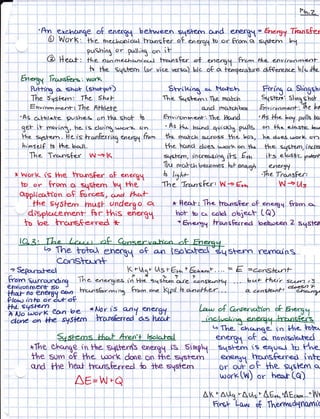 Ph.2
An exchange of energy between system and energy = Energy Transfer
① Work: the mechanical transfer of energy to or from a system by
pushing or pulling on it
② Heat: the nonmechanical transfer of energy from the environment
to the system (or vice versa) b/c of a temperature difference b/w the
Energy Transfers: work
Putting a shot (shotput)
The System: The Shot
Environment: The Athlete
- As athlete pushes on the shot to
get it moving, he is doing work on
the system. He is tranferring energy from
himself to the ball.
The Transfer W→K
Striking a Match
The System: The Match
and matchbox
- As the hand quickly pulls
the match across the box,
the hand does work on the
system, increasing its Eth
The match becomes hot enough
to light
The Transfer: W→Eth
Firing a Slingsh
System: Slingshot
Environment: The
- As the boy pulls ba
on the elastic
he does work on
the system, incre
its elastic
energy
- The Transfer:
W→Us
* Work is the transfer of energy
to or from a system by the
application of forces, and that
the system must undergo a
displacement for this energy
to be transferred *
* Heat: The transfer of energy from a
hot to a cold object (Q)
* Energy transferred between 2 syste
10.3: The Law of Conservation of Energy
↳ The total energy of an isolated system remains
constant
→ Separated
from surrounding
environment so
that no energy can
flow into or out of
the system
* No work can be
done on the system
K + Ug + Us + Eth + Echem + ... = E = constant
The energies in the system are constantly
transforming from one kind to another...
... but their sum is
a constant:
* Nor is any energy
transferred as heat
Systems that Aren't Isolated
* The change in the system's energy is simply
the sum of the work done on the system
and the heat transferred to the system
ΔE = W + Q
Law of Conservation of Energy
including energy transfers
↳ The change in the total
energy of a nonisolated
system is equal to the
energy transferred into
or out of the system as
work (W) or heat (Q)
ΔK + ΔUg + ΔUs + ΔEth + ΔEchem
First Law of Thermodynamic